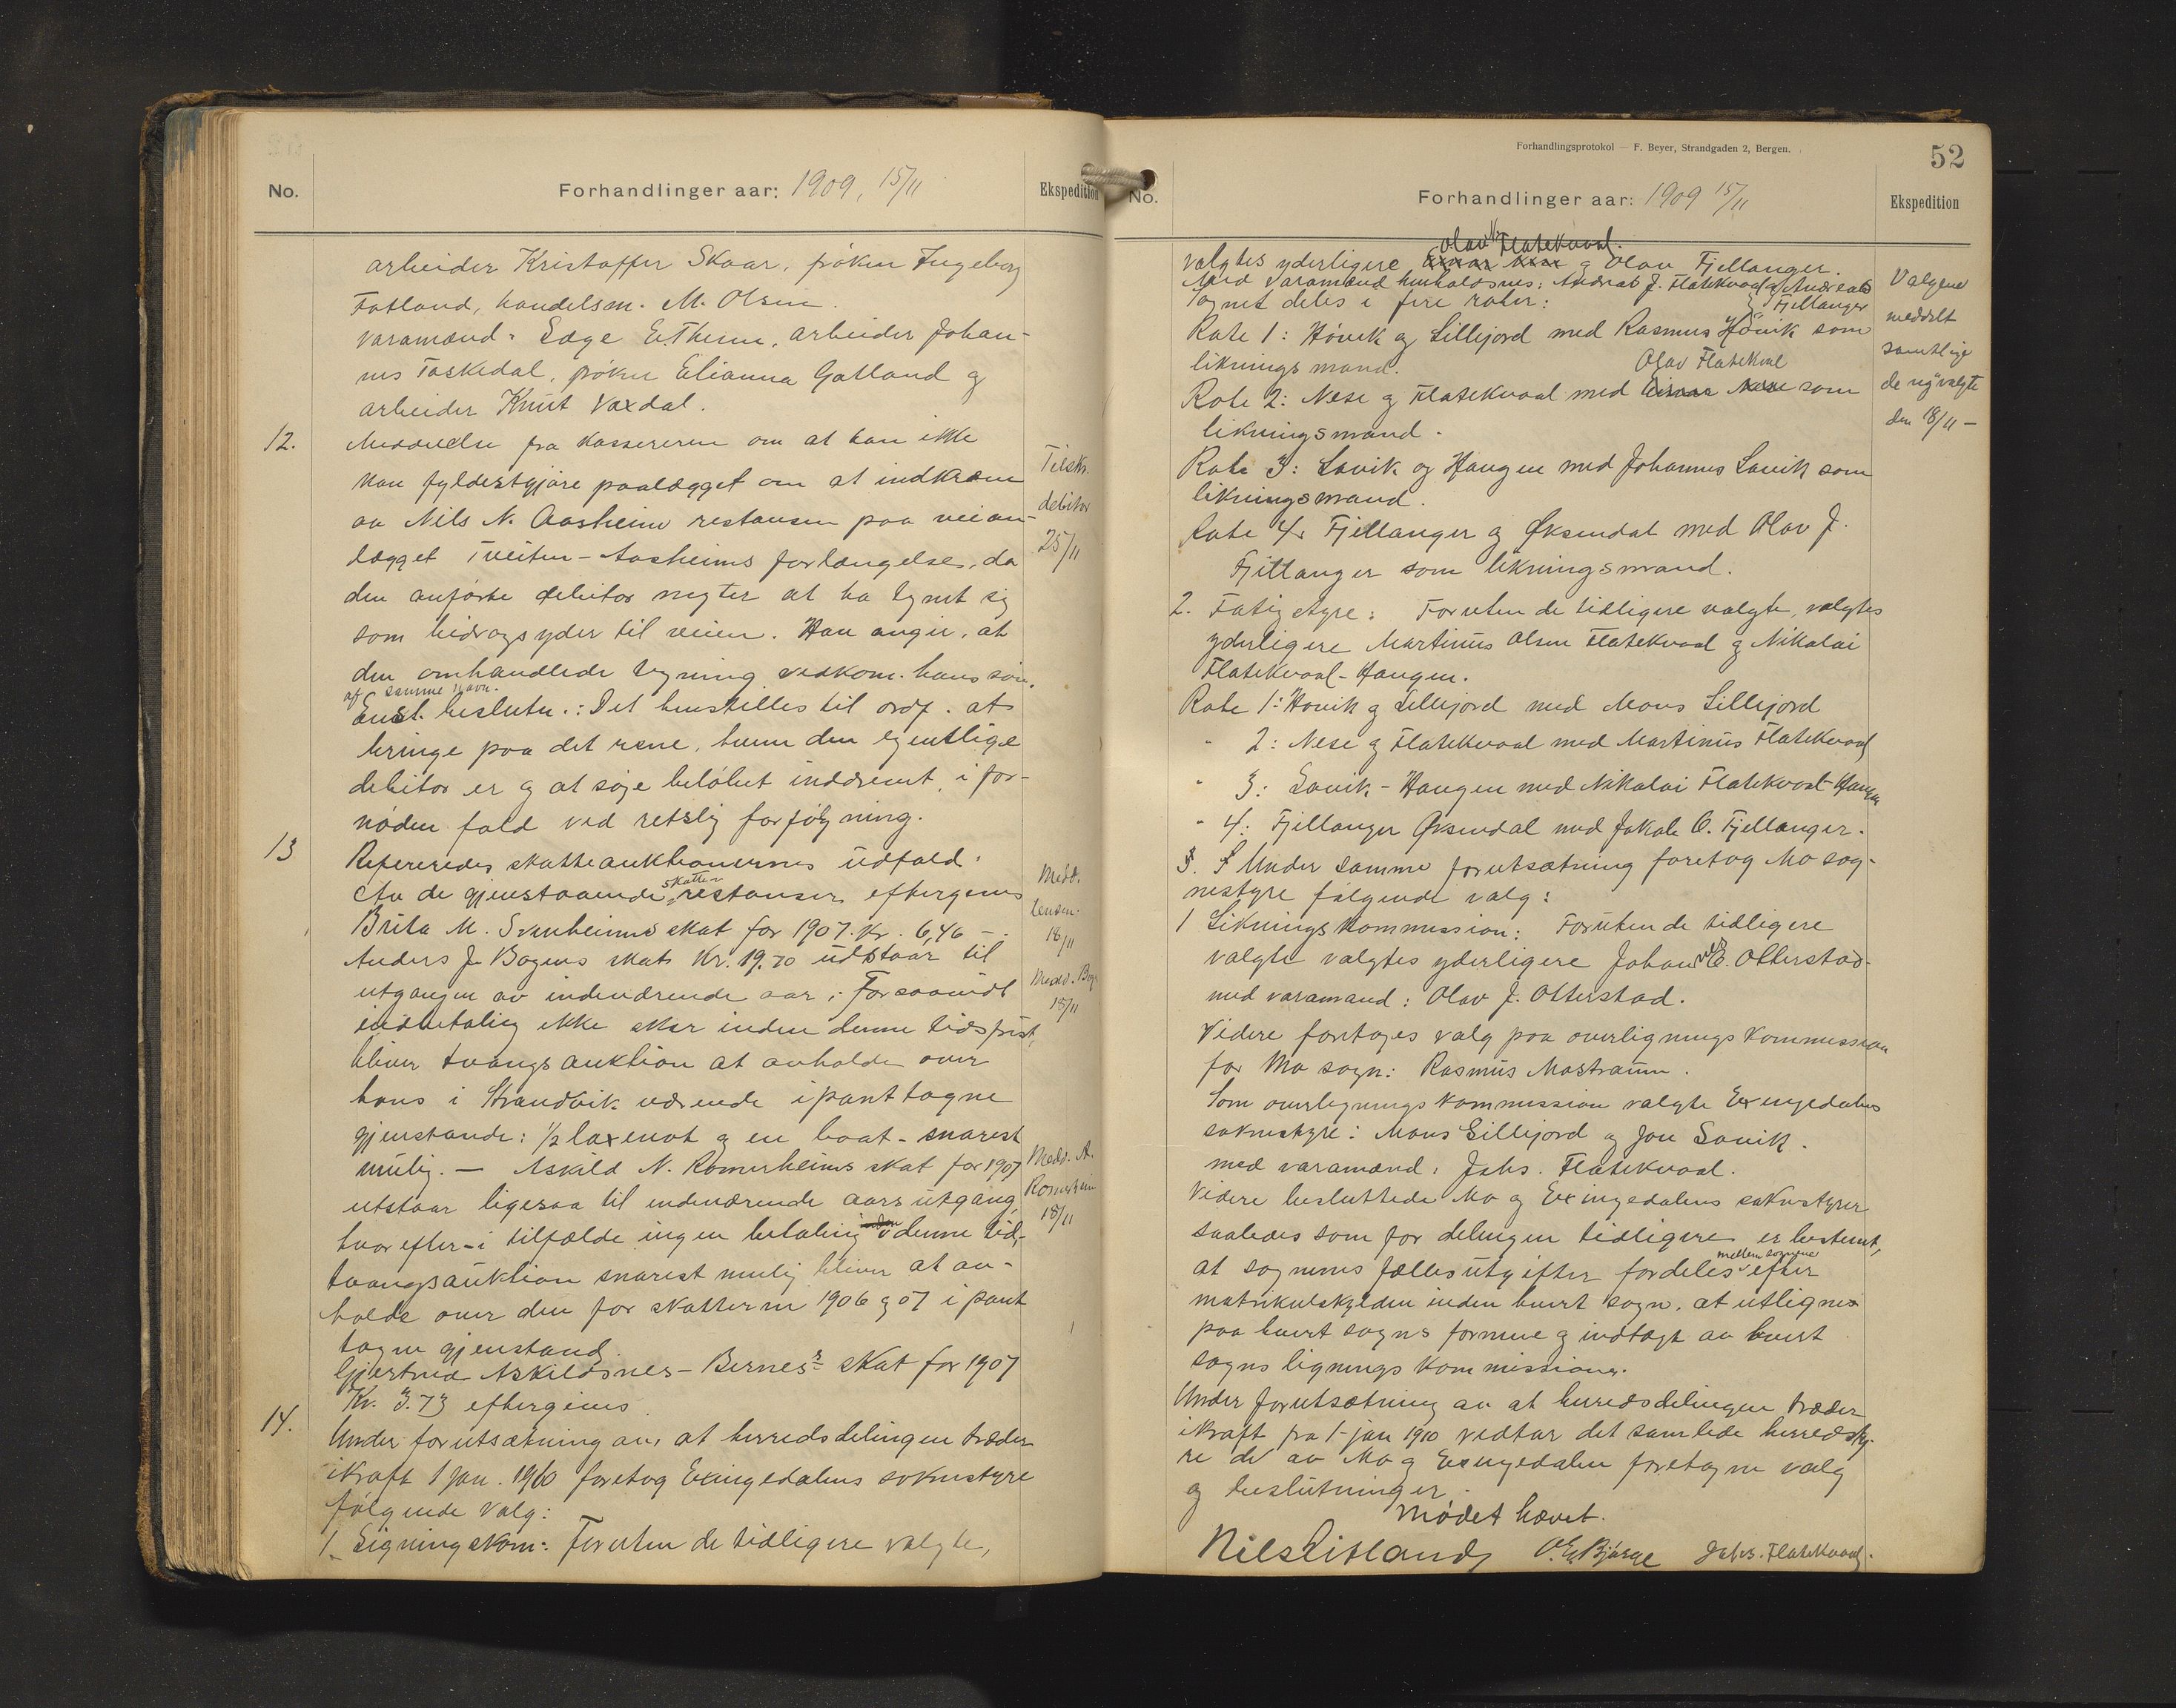 No.
Forhandlinger aar: 1909, 15/11
Ekspedition
arbeider Kristoffer Skaar, frøken Ingeborg
Fotland, handelsm. M. Olsen.
Varamænd: Læge E. Thesen, arbeider Johan-
nes Taskedal, frøken Elianna Gatland og
arbeider Knut Vaxdal.
12. Meddelelse fra kassereren om at han ikke
kan fyldestgjøre paalægget om at indkræve
av Nils N. Aasheim restansen paa veian-
lægget Tveiten - Aasheims forlængelse, da
den anførte debitor negter at ha tegnet sig
som bidragsyder til veien. Han angir, at
den omhandlede tegning vedkom. hans søn
af samme navn.
Enst. beslutn.: Det henstilles til ordf. at
bringe paa det rene, hvem den egentlige
debitor er og at søge beløbet inddrevet, i for-
nøden fald ved retslig forfølgning.
Tilskr.
debitor
25/11
13 Refereredes skatteauktionernes udfald.
Av de gjenstaaende skatterestanser eftergives
Brita M. Svanheims skat for 1907. Kr. 6,46 -
Anders J. Bogens skat Kr. 19.70 udstaar til
utgangen av indeværende aar; forsaavidt
indbetaling ikke sker inden denne tidsfrist,
bliver tvangsauktion at avholde over
hans i Strandvik værende ipanttagne
gjenstande: 1/2 laxenot og en baat - snarest
mulig. — Askild N. Romerheims skat for 1907
utstaar ligesaa til indeværende aars utgang,
hvorefter - i tilfælde ingen betaling inden denne tid,
tvangsauktion snarest mulig bliver at av-
holde over den for skatterne 1906 og 07 i pant
tagne gjenstand.
Gjertrud Askildsnes - Bernes's skat for 1907
Kr. 3.73 eftergives.
Medd.
lensm.
18/11
Medd. Bog.
18/11
Medd. A.
Romerheim
18/11
14. Under forutsætning av, at herredsdelingen træder
ikraft 1 jan. 1910 foretog Exingedalens soknestyre
følgende valg:
1. Ligningskom: Foruten de tidligere valgte,
Forhandlingsprotokol — F. Beyer, Strandgaden 2, Bergen.
52
No.
Forhandlinger aar: 1909 15/11
Ekspedition
Olav Flatekvaal.
valgtes yderligere Einar Nese og Olav Fjellanger.
Med varamænd henholdsvis: Andreas J. Flatekvaal og Andreas
Fjellanger
Sognet deles i fire roter:
Rote 1: Høvik og Lillejord med Rasmus Høvik som
likningsmand.
Olav Flatekval
Rote 2: Nese og Flatekvaal med Einar Nese som
likningsmand.
Rote 3: Lavik og Haugen med Johannes Lavik som
likningsmand.
Rote 4: Fjellanger og Øksendal med Olav J.
Fjellanger som likningsmand.
2. Fatigstyre: Foruten de tidligere valgte, valgtes
yderligere Martinus Olsen Flatekvaal og Nikolai
Flatekvaal - Haugen.
Rote 1: Høvik og Lillejord med Mons Lillejord
" 2: Nese og Flatekvaal med Martinus Flatekvaal
" 3: Lavik - Haugen med Nikolai Flatekvaal-Haugen
" 4: Fjellanger Øksendal med Jakob O. Fjellanger.
Valgene
meddelt
samtlige
de nyvalgte
den 18/11 -
3. Under samme forutsætning foretog Mo sog-
nestyre følgende valg:
1 Likningskommission: Foruten de tidligere
valgte valgtes yderligere Johannes E. Otterstad
med varamand: Olav J. Otterstad.
Videre foretoges valg paa overligningskommission
for Mo sogn: Rasmus Mostraum.
Som overligningskommission valgte Exingedalens
soknestyre: Mons Lillejord og Jon Lavik.
med varamænd: Johs. Flatekvaal.
Videre besluttede Mo og Exingedalens soknestyrer
saaledes som for delingen tidligere er bestemt,
at sognenes fællesutgifter fordeles mellem sognene efter
matrikulskylden inden hvert sogn, at utlignes
paa hvert sogns formue og indtægt av hvert
sogns ligningskommissioner.
Under forutsætning av at herredsdelingen træder
ikraft fra 1 jan 1910 vedtar det samlede herredsty-
re de av Mo og Exingedalen foretagne valg
og beslutninger.
Mødet hævet.
Nils Litland O. E. Bjørge Johs. Flatekvaal.